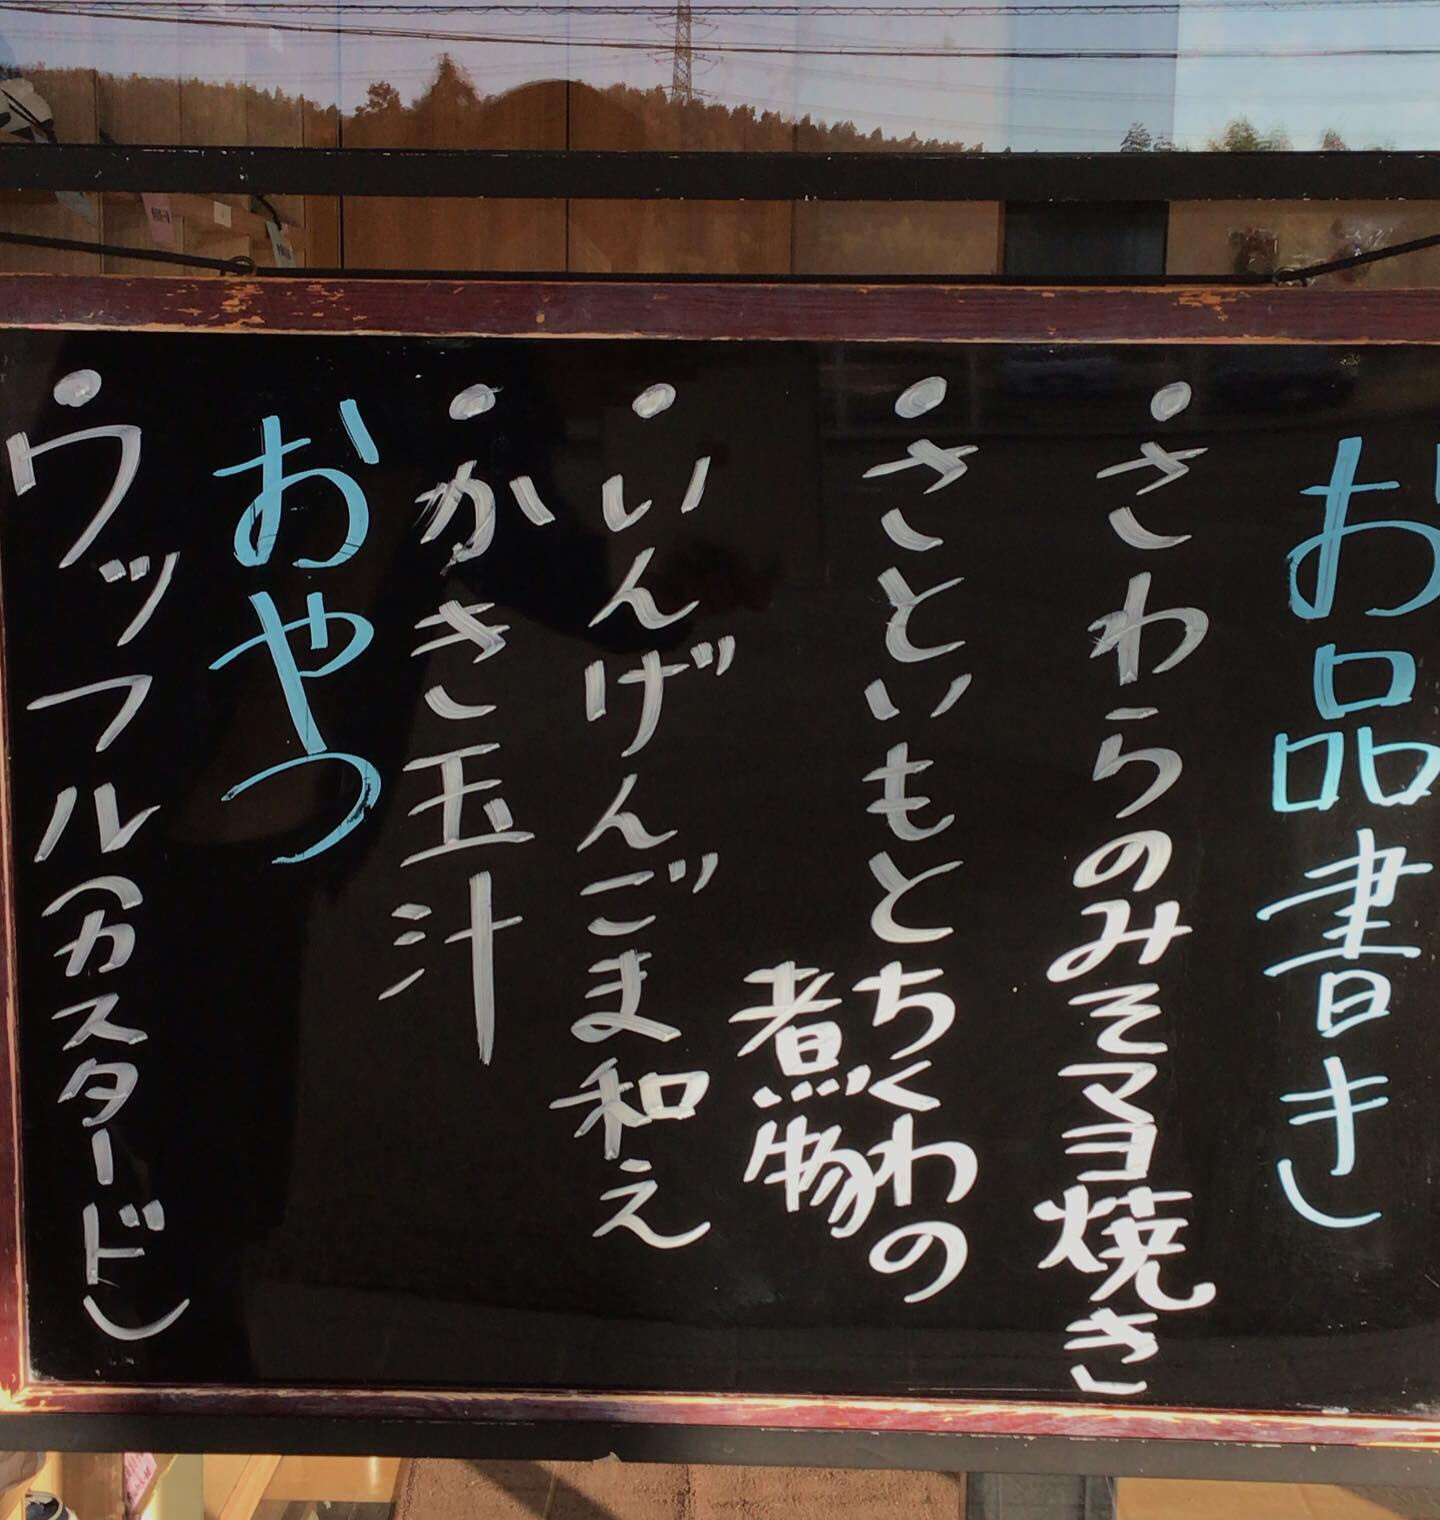 お品書き
・さわらのみそマヨ焼き
・さといもとちくわの
煮物
・いんげんごま和え
・かき玉汁
おやつ
・ワッフル(カスタード)